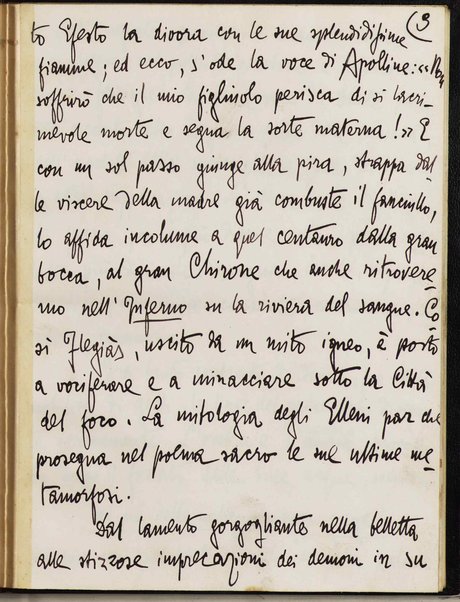 (3
to Efesto la divora con le sue splendidissime
fiamme; ed ecco, s'ode la voce di Apolline: «Non
soffrirò che il mio figliuolo perisca di sì lacri-
mevole morte e segua la sorte materna!» E
con un sol passo giunge alla pira, strappa dal-
le viscere della madre già combuste il fanciullo,
lo affida incolume a quel centauro dalla gran
bocca, al gran Chirone che anche ritrovere-
mo nell'Inferno su la riviera del sangue. Co-
sì Flegiàs, uscito da un mito igneo, è posto
a vociferare e a minacciare sotto la Città
del foco. La mitologia degli Elleni par che
prosegua nel poema sacro le sue ultime me-
tamorfosi.
Dal lamento gorgogliante nella belletta
alle stizzose imprecazioni dei demoni in su